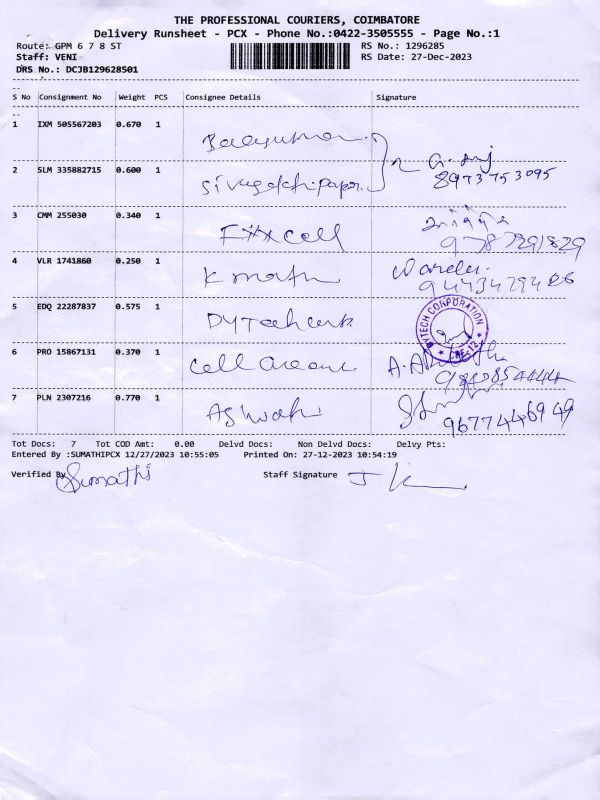 THE PROFESSIONAL COURIERS, COIMBATORE
Delivery Runsheet - PCX - Phone No.:0422-3505555 - Page No.:1
Route: GPM 6 7 8 ST RS No.: 1296285
Staff: VENI RS Date: 27-Dec-2023
DRS No.: DCJB129628501
S No Consignment No Weight PCS Consignee Details Signature
1 IXM 505567203 0.670 1
2 SLM 335882715 0.600 1 8973753095
3 CMM 255030 0.340 1 cell 9787291829
4 VLR 1741860 0.250 1 K
5 EDQ 22287837 0.575 1 DyTech
DYTECH CORPORATION
CBE-12
6 PRO 15867131 0.370 1 cell
7 PLN 2307216 0.770 1 Aswah 9677446949
Tot Docs: 7 Tot COD Amt: 0.00 Delvd Docs: Non Delvd Docs: Delvy Pts:
Entered By :SUMATHIPCX 12/27/2023 10:55:05 Printed On: 27-12-2023 10:54:19
Verified By Sumathi Staff Signature